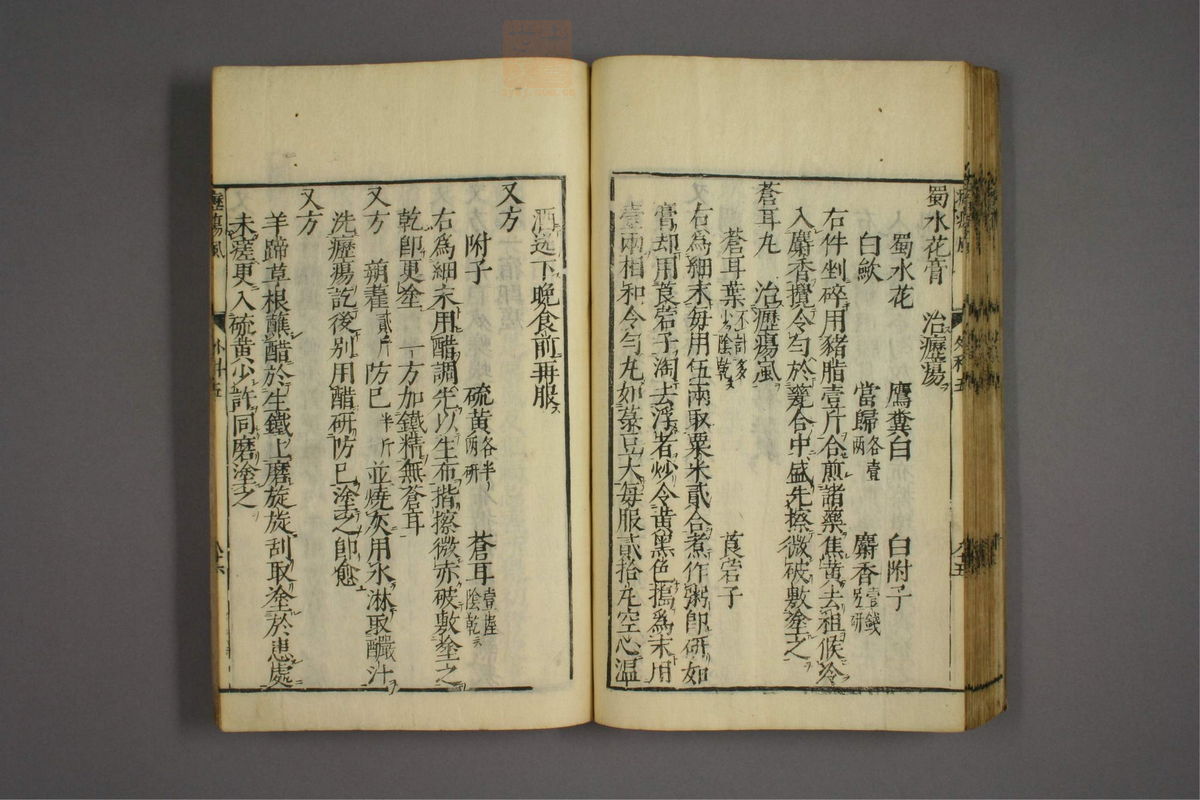 蜀水花膏　治癧瘍
蜀水花　鷹糞白　白附子
白歛　當歸各壹兩　麝香壹錢別研
右件剉碎用豬脂壹斤合煎諸藥焦黃去柤候冷
入麝香攪令勻於甕合中盛先擦微破敷塗之
蒼耳丸　治癧瘍風
蒼耳葉不計多少陰乾　莨菪子
右為細末每用伍兩取粟米貳合煮作粥即研如
膏却用莨菪子淘去浮者炒令黃黑色搗為末用
壹兩相和令勻丸如菉豆大每服貳拾丸空心溫
酒送下晚食前再服
又方
附子　硫黃各半兩研　蒼耳壹陰乾
右為細末用醋調先以生布揩擦微赤破敷塗之
乾即更塗　一方加鐵精無蒼耳
又方　蒴藋貳斤　防已半斤　並燒灰用水淋取釅汁
洗癧瘍訖後别用醋研防已塗之即愈
又方
羊蹄草根蘸醋於生鐵上磨旋旋刮取塗於患處
未瘥更入硫黃少許同磨塗之
癧瘍風　外科五